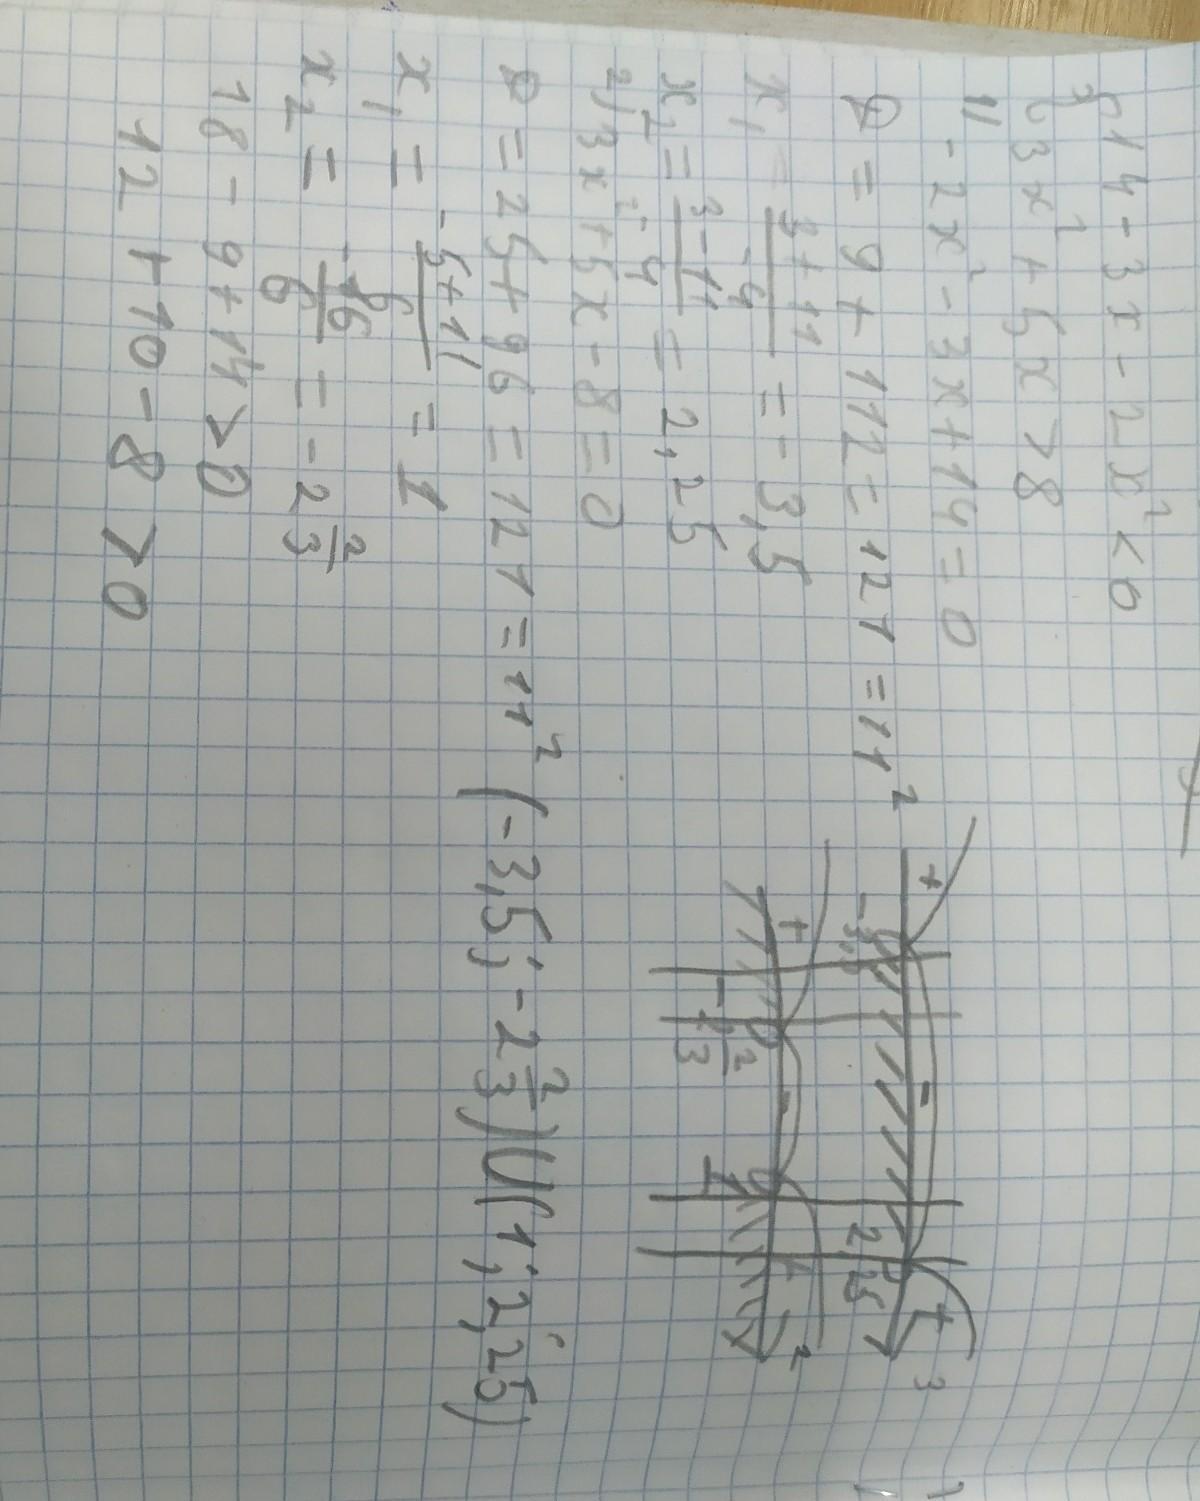 {14-3x-2x²<0
{3x²+5x>8
1) -2x²-3x+14=0
D=9+112=121=11²
x₁=3+11/-4=-3,5
x₂=3-11/-4=2,25
2) 3x²+5x-8=0
D=25+96=121=11²
x₁=-5+11/6=1
x₂=-16/6=-2 2/3
18-9+14>0
12+10-8>0
+ - +
-3,5 2,25
+ -
-2 2/3 1
(-3,5; -2 2/3)U(1; 2,25)